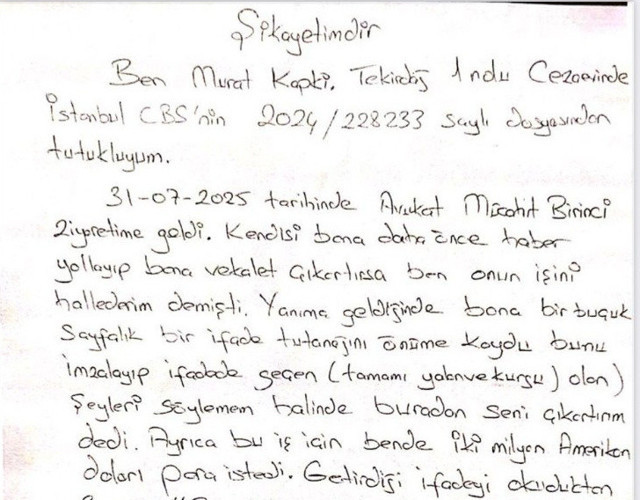 Şikayetimdir
Ben Murat Kapki. Tekirdağ 1 nolu Cezaevinde
İstanbul CBS'nin 2024/228233 sayılı dosyasından
tutukluyum.
31-07-2025 tarihinde Avukat Mücahit Birinci
Ziyaretime geldi. Kendisi bana daha önce haber
yollayıp bana vekalet Çıkartırsa ben onun işini
hallederim demişti. Yanıma geldiğinde bana bir buçuk
Sayfalık bir ifade tutanağını önüme koydu bunu
imzalayıp ifadede geçen (tamamı yalan ve kurgu) olan)
Şeyleri söylemem halinde buradan seni çıkartırım
dedi. Ayrıca bu iş için bende iki milyon Amerikan
doları para istedi. Getirdiği ifadeyi okuduktan